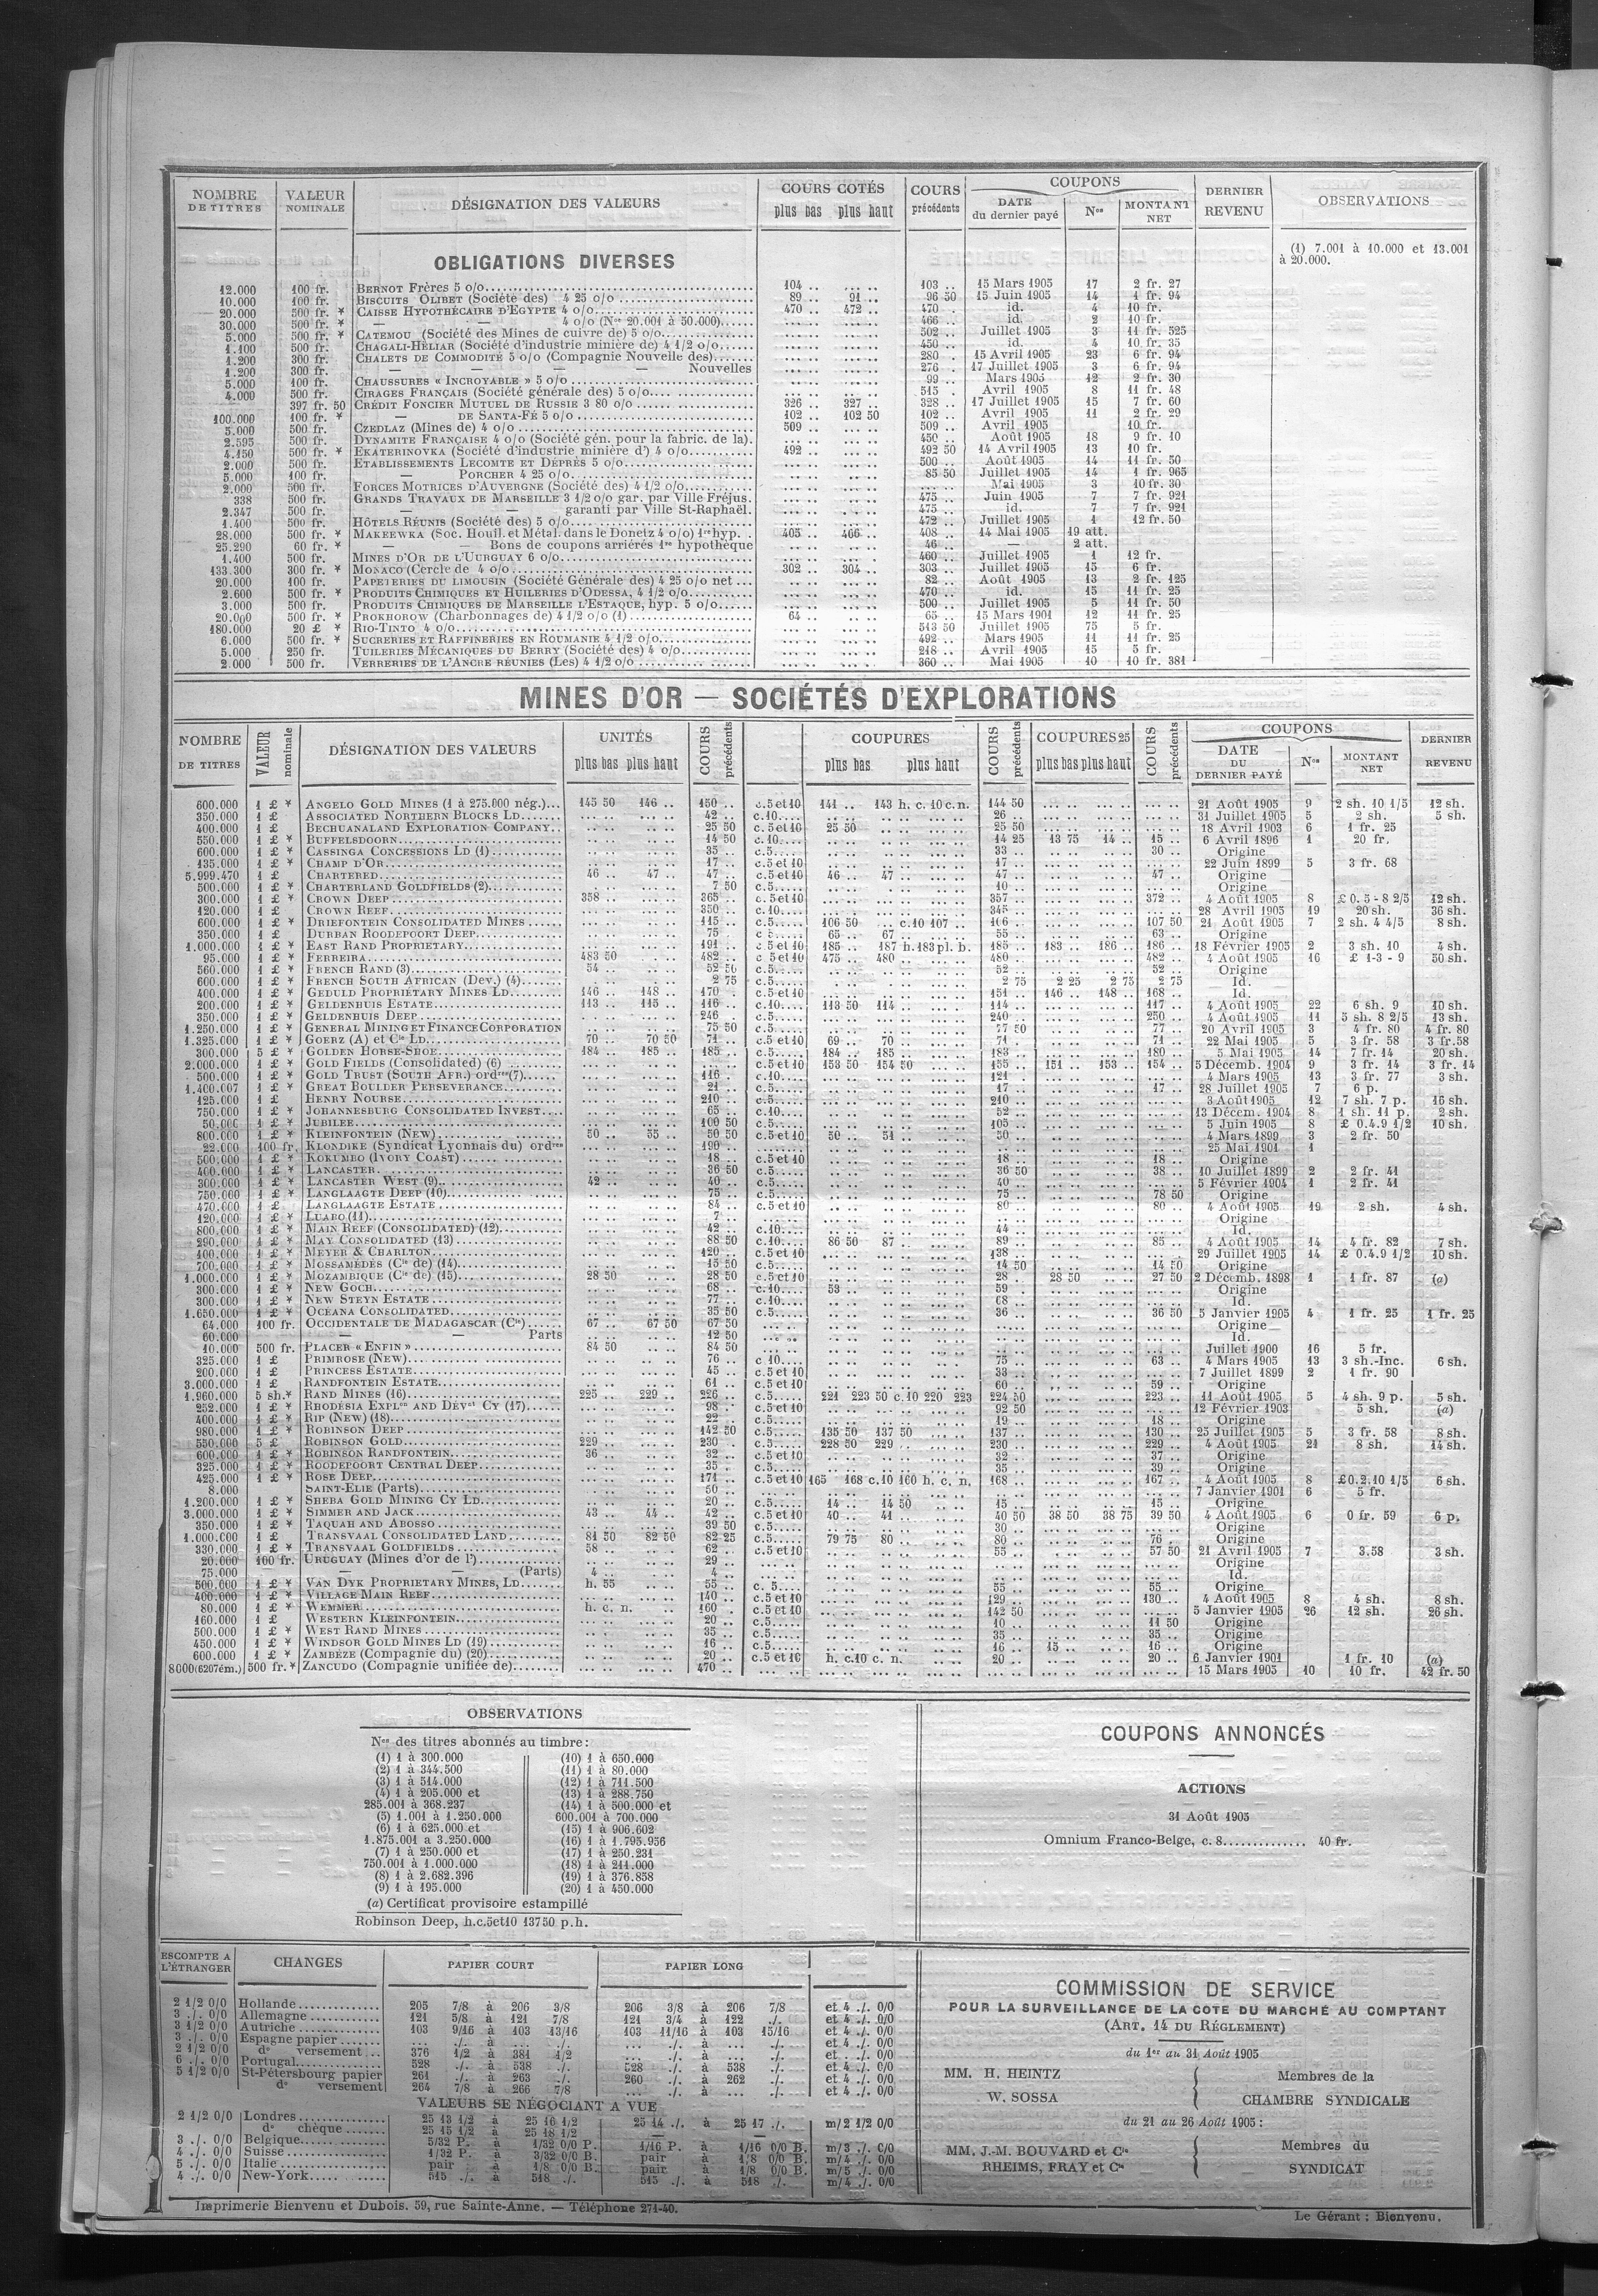 NOMBRE DE TITRES | VALEUR NOMINALE | DÉSIGNATION DES VALEURS | COURS COTÉS plus bas plus haut | COURS précédents | COUPONS DATE du dernier payé | Nos | MONTANT NET | DERNIER REVENU | OBSERVATIONS
(1) 7.001 à 10.000 et 13.001
à 20.000.
OBLIGATIONS DIVERSES
12.000 100 fr. BERNOT Frères 5 o/o 104 .. .. .. 103 .. 15 Mars 1905 17 2 fr. 27
10.000 100 fr. BISCUITS OLIBET (Société des) 4 25 o/o 89 .. 91 .. 96 50 15 Juin 1905 14 1 fr. 94
20.000 500 fr. * CAISSE HYPOTHÉCAIRE D'EGYPTE 4 o/o 470 .. 472 .. 470 .. id. 4 10 fr.
30.000 500 fr. * — — 4 o/o (Nos 20.001 à 50.000) .. .. .. .. 466 .. id. 2 10 fr.
5.000 500 fr. * CATEMOU (Société des Mines de cuivre de) 5 o/o .. .. .. .. 502 .. Juillet 1905 3 11 fr. 525
1.100 500 fr. CHAGALI-HÉLIAR (Société d'industrie minière de) 4 1/2 o/o .. .. .. .. 450 .. id. 4 10 fr. 35
1.200 300 fr. CHALETS DE COMMODITÉ 5 o/o (Compagnie Nouvelle des) .. .. .. .. 280 . 15 Avril 1905 23 6 fr. 94
1.200 300 fr. — — — — Nouvelles .. .. .. .. 276 . 17 Juillet 1905 3 6 fr. 94
5.000 100 fr. CHAUSSURES « INCROYABLE » 5 o/o .. .. .. .. 99 .. Mars 1905 12 2 fr. 30
4.000 500 fr. CIRAGES FRANÇAIS (Société générale des) 5 o/o .. .. .. .. 515 . Avril 1905 8 11 fr. 48
397 fr. 50 CRÉDIT FONCIER MUTUEL DE RUSSIE 3 80 o/o 326 .. 327 .. 328 .. 17 Juillet 1905 15 7 fr. 60
100.000 100 fr. * — DE SANTA-FÉ 5 o/o 102 .. 102 50 102 .. Avril 1905 11 2 fr. 29
5.000 500 fr. CZEDLAZ (Mines de) 4 o/o 509 .. .. .. 509 .. Avril 1905 10 fr.
2.595 500 fr. DYNAMITE FRANÇAISE 4 o/o (Société gén. pour la fabric. de la). .. .. .. .. 450 .. Août 1905 18 9 fr. 10
4.150 500 fr. * EKATERINOVKA (Société d'industrie minière d') 4 o/o 492 .. .. .. 492 50 14 Avril 1905 13 10 fr.
2.000 500 fr. ETABLISSEMENTS LECOMTE ET DÉPRÈS 5 o/o .. .. .. .. 500 .. Août 1905 14 11 fr. 50
5.000 100 fr. — PORCHER 4 25 o/o .. .. .. .. 85 50 Juillet 1905 14 1 fr. 965
2.000 500 fr. FORCES MOTRICES D'AUVERGNE (Société des) 4 1/2 o/o .. .. .. .. .. .. Mai 1905 3 10 fr. 30
338 500 fr. GRANDS TRAVAUX DE MARSEILLE 3 1/2 o/o gar. par Ville Fréjus. .. .. .. .. 475 .. Juin 1905 7 7 fr. 921
2.347 500 fr. — — garanti par Ville St-Raphaël. .. .. .. .. 475 .. id. 7 7 fr. 921
1.400 500 fr. HÔTELS RÉUNIS (Société des) 5 o/o .. .. .. .. 472 .. Juillet 1905 1 12 fr. 50
28.000 500 fr. * MAKEEWKA (Soc. Houil. et Métal. dans le Donetz 4 o/o) 1re hyp. 405 .. 466 .. 408 .. 14 Mai 1905 19 att.
25.290 60 fr. * — Bons de coupons arriérés 1re hypothèque .. .. .. .. 46 .. — 2 att.
1.400 500 fr. MINES D'OR DE L'URUGUAY 6 o/o .. .. .. .. 460 .. Juillet 1905 1 12 fr.
133.300 300 fr. * MONACO (Cercle de 4 o/o 302 .. 304 .. 303 .. Juillet 1905 15 6 fr.
20.000 100 fr. PAPETERIES DU LIMOUSIN (Société Générale des) 4 25 o/o net .. .. .. .. 82 .. Août 1905 13 2 fr. 125
2.600 500 fr. * PRODUITS CHIMIQUES ET HUILERIES D'ODESSA, 4 1/2 o/o .. .. .. .. 470 .. id. 15 11 fr. 25
3.000 500 fr. PRODUITS CHIMIQUES DE MARSEILLE L'ESTAQUE, hyp. 5 o/o .. .. .. .. 500 .. Juillet 1905 5 11 fr. 50
20.000 500 fr. * PROKHOROW (Charbonnages de) 4 1/2 o/o (1) 64 .. .. .. 65 .. 15 Mars 1901 12 11 fr. 25
180.000 20 £ * RIO-TINTO 4 o/o .. .. .. .. 513 50 Juillet 1905 75 5 fr.
6.000 500 fr. * SUCRERIES ET RAFFINERIES EN ROUMANIE 4 1/2 o/o .. .. .. .. 492 .. Mars 1905 11 11 fr. 25
5.000 250 fr. TUILERIES MÉCANIQUES DU BERRY (Société des) 4 o/o .. .. .. .. 218 .. Avril 1905 15 5 fr.
2.000 500 fr. VERRERIES DE L'ANCRE RÉUNIES (Les) 4 1/2 o/o .. .. .. .. 360 .. Mai 1905 10 10 fr. 381
MINES D'OR — SOCIÉTÉS D'EXPLORATIONS
NOMBRE DE TITRES | VALEUR nominale | DÉSIGNATION DES VALEURS | UNITÉS plus bas plus haut | COURS précédents | COUPURES plus bas plus haut | COURS précédents | COUPURES 25 plus bas plus haut | COURS précédents | COUPONS DATE DU DERNIER PAYÉ | Nos | MONTANT NET | DERNIER REVENU
600.000 1 £ * ANGELO GOLD MINES (1 à 275.000 nég.) 145 50 146 .. 150 .. c.5 et 10 141 .. 143 h. c. 10 c.n. 144 50 21 Août 1905 9 2 sh. 10 1/5 12 sh.
350.000 1 £ ASSOCIATED NORTHERN BLOCKS LD 42 .. c.10 26 .. 31 Juillet 1905 5 2 sh. 5 sh.
400.000 1 £ BECHUANALAND EXPLORATION COMPANY 25 50 c. 5 et 10 25 50 25 50 18 Avril 1903 6 1 fr. 25
550.000 1 £ * BUFFELSDOORN 14 50 c.10 14 25 13 75 14 .. 15 .. 6 Avril 1896 1 20 fr.
600.000 1 £ * CASSINGA CONCESSIONS LD (1) 35 .. c.5 33 .. 30 .. Origine
135.000 1 £ * CHAMP D'OR 17 .. c.5 et 10 17 .. 22 Juin 1899 5 3 fr. 68
5.999.470 1 £ CHARTERED 46 .. 47 .. 47 .. c.5 et 10 46 .. 47 .. 47 .. 47 .. Origine
500.000 1 £ * CHARTERLAND GOLDFIELDS (2) 7 50 c.5 10 .. Origine
300.000 1 £ * CROWN DEEP 358 .. 365 .. c. 5 et 10 357 .. 372 .. 4 Août 1905 8 £ 0. 5 - 8 2/5 12 sh.
120.000 1 £ CROWN REEF 350 .. c.10 345 .. 28 Avril 1905 19 20 sh. 36 sh.
600.000 1 £ * DRIEFONTEIN CONSOLIDATED MINES 115 .. c.5 106 50 c.10 107 .. 107 50 21 Août 1905 7 2 sh. 4 4/5 8 sh.
350.000 1 £ DURBAN ROODEPOORT DEEP 75 .. 65 .. 67 .. 55 .. 63 .. Origine
1.000.000 1 £ * EAST RAND PROPRIETARY 191 .. c 5 et 10 185 .. 187 h. 183 pl. b. 185 .. 183 .. 186 .. 186 .. 18 Février 1905 2 3 sh. 10 4 sh.
95.000 1 £ * FERREIRA 483 50 482 .. c 5 et 10 475 .. 480 .. 480 .. 482 .. 4 Août 1905 16 £ 1-3 - 9 50 sh.
560.000 1 £ * FRENCH RAND (3) 54 .. 52 50 c.5 52 .. 52 .. Origine
600.000 1 £ * FRENCH SOUTH AFRICAN (Dev.) (4) 2 75 c.5 2 75 2 25 2 75 2 75 Id.
400.000 1 £ * GEDULD PROPRIÉTARY MINES LD 146 .. 148 .. 170 . c.5 et 10 151 .. 146 .. 148 .. 168 .. Id.
200.000 1 £ * GELDENHUIS ESTATE 113 .. 115 .. 116 .. c.10 113 50 114 .. 114 .. 117 .. 4 Août 1905 22 6 sh. 9 10 sh.
350.000 1 £ * GELDENHUIS DEEP 246 .. c.5 240 .. 250 .. 4 Août 1905 11 5 sh. 8 2/5 13 sh.
1.250.000 1 £ * GENERAL MINING ET FINANCE CORPORATION 75 50 c.5 77 50 77 .. 20 Avril 1905 3 4 fr. 80 4 fr. 80
1.325.000 1 £ * GOERZ (A) et Cie LD 70 .. 70 50 71 .. c.5 et 10 69 .. 70 .. 71 .. 71 .. 22 Mai 1905 5 3 fr. 58 3 fr. 58
300.000 5 £ * GOLDEN HORSE-SHOE 184 .. 185 .. 185 .. c.5 184 .. 185 .. 183 .. 180 .. 5 Mai 1905 14 7 fr. 14 20 sh.
2.000.000 1 £ * GOLD FIELDS (Consolidated) (6) c.5 et 10 153 50 154 50 155 .. 151 .. 153 .. 154 .. 5 Décemb. 1904 9 3 fr. 14 3 fr. 14
500.000 1 £ * GOLD TRUST (SOUTH AFR.) ordres (7) 116 .. c.10 121 .. 4 Mars 1905 13 3 fr. 77 3 sh.
1.400.007 1 £ * GREAT BOULDER PERSEVERANCE 21 .. c.5 17 .. 17 .. 28 Juillet 1905 7 6 p.
125.000 1 £ HENRY NOURSE 210 .. c.5 210 .. 3 Août 1905 12 7 sh. 7 p. 16 sh.
750.000 1 £ * JOHANNESBURG CONSOLIDATED INVEST. 65 .. c.10 52 .. 13 Décem. 1904 8 1 sh. 11 p. 2 sh.
50.000 1 £ * JUBILEE 100 50 c.5 105 .. 5 Juin 1905 8 £ 0.4.9 1/2 10 sh.
800.000 1 £ * KLEINFONTEIN (NEW) 50 .. 55 .. 50 50 c.5 et 10 50 .. 51 .. 50 .. 4 Mars 1899 3 2 fr. 50
22.000 100 fr. KLONDIKE (Syndicat Lyonnais du) ordres 190 .. 25 Mai 1901 1
500.000 1 £ * KOKUMBO (IVORY COAST) 18 .. c.5 et 10 18 .. 18 .. Origine
400.000 1 £ * LANCASTER 36 50 c.5 36 50 38 .. 10 Juillet 1899 2 2 fr. 41
300.000 1 £ * LANCASTER WEST (9) 42 .. 40 .. c.5 40 .. 5 Février 1904 1 2 fr. 41
750.000 1 £ * LANGLAAGTE DEEP (10) 75 .. c.5 75 .. 78 50 Origine
470.000 1 £ LANGLAAGTE ESTATE 84 .. c.5 et 10 80 .. 80 .. 4 Août 1905 19 2 sh. 4 sh.
120.000 1 £ * LUABO (11) 7 .. Origine
800.000 1 £ * MAIN REEF (CONSOLIDATED) (12) 42 .. c.10 44 .. Id.
290.000 1 £ * MAY CONSOLIDATED (13) 88 50 c.10 86 50 87 .. 89 .. 85 .. 4 Août 1905 14 4 fr. 82 7 sh.
100.000 1 £ * MEYER & CHARLTON 120 .. c.5 et 10 138 .. 29 Juillet 1905 14 £ 0.4.9 1/2 10 sh.
700.000 1 £ * MOSSAMÉDÈS (Cie de) (14) 15 50 c.5 14 50 14 50 Origine
1.000.000 1 £ * MOZAMBIQUE (Cie de) (15) 28 50 28 50 c.5 et 10 28 .. 28 50 27 50 2 Décemb. 1898 1 1 fr. 87 (a)
300.000 1 £ * NEW GOCH 68 .. c.10 53 .. 59 .. Origine
300.000 1 £ * NEW STEYN ESTATE 77 .. c.10 68 .. Id.
1.650.000 1 £ * OCEANA CONSOLIDATED 35 50 c.5 36 .. 36 50 5 Janvier 1905 4 1 fr. 25 1 fr. 25
64.000 100 fr. OCCIDENTALE DE MADAGASCAR (Cie) 67 .. 67 50 67 50 Origine
60.000 — — Parts 12 50 Id.
10.000 500 fr. PLACER « ENFIN » 84 50 84 50 Juillet 1900 16 5 fr.
325.000 1 £ PRIMROSE (NEW) 76 .. c 10 75 .. 63 .. 4 Mars 1905 13 3 sh.-Inc. 6 sh.
200.000 1 £ PRINCESS ESTATE 45 .. c.5 et 10 33 .. 7 Juillet 1899 2 1 fr. 90
3.000.000 1 £ RANDFONTEIN ESTATE 61 .. c.5 et 10 60 .. 59 .. Origine
1.960.000 5 sh.* RAND MINES (16) 225 .. 229 .. 226 .. c.5 221 223 50 c.10 220 223 224 50 223 .. 11 Août 1905 5 4 sh. 9 p. 5 sh.
252.000 1 £ * RHODÉSIA EXPLon AND DÉVnt CY (17) 98 .. c.5 et 10 92 50 12 Février 1903 5 sh. (a)
400.000 1 £ * RIP (NEW) (18) 22 .. c.5 19 .. 18 .. Origine
980.000 1 £ * ROBINSON DEEP 142 50 c.5 135 50 137 50 137 .. 130 .. 25 Juillet 1905 5 3 fr. 58 8 sh.
550.000 5 £ ROBINSON GOLD 229 .. 230 . c.5 228 50 229 .. 230 .. 229 .. 4 Août 1905 21 8 sh. 14 sh.
600.000 1 £ * ROBINSON RANDFONTEIN 36 .. 32 .. c.5 et 10 32 .. 37 .. Origine
325.000 1 £ * ROODEPOORT CENTRAL DEEP 35 .. c.5 35 .. 39 .. Origine
425.000 1 £ * ROSE DEEP 171 .. c.5 et 10 165 168 c.10 160 h. c. n. 168 .. 167 .. 4 Août 1905 8 £0.2.10 1/5 6 sh.
8.000 SAINT-ELIE (Parts) 50 .. 7 Janvier 1901 6 5 fr.
1.200.000 1 £ * SHEBA GOLD MINING CY LD 20 .. c.5 14 .. 14 50 15 .. 15 .. Origine
3.000.000 1 £ * SIMMER AND JACK 43 .. 44 .. 42 .. c.5 et 10 40 .. 41 .. 40 50 38 50 38 75 39 50 4 Août 1905 6 0 fr. 59 6 p.
350.000 1 £ * TAQUAH AND ABOSSO 39 50 c.5 30 .. Origine
1.000.000 1 £ TRANSVAAL CONSOLIDATED LAND 81 50 82 50 82 25 c.5 79 75 80 .. 80 .. 76 .. Origine
330.000 1 £ * TRANSVAAL GOLDFIELDS 58 .. 62 .. c.5 et 10 55 .. 57 50 21 Avril 1905 7 3.58 3 sh.
20.000 100 fr. URUGUAY (Mines d'or de l') 29 .. Origine
75.000 — — (Parts) 4 .. 4 .. Id.
500.000 1 £ * VAN DYK PROPRIETARY MINES, LD h. 55 55 .. c. 5 55 .. 55 .. Origine
400.000 1 £ * VILLAGE MAIN REEF 140 .. c.5 et 10 129 .. 130 .. 4 Août 1905 8 4 sh. 8 sh.
80.000 1 £ * WEMMER h. c. n. 160 . c.5 et 10 142 50 5 Janvier 1905 26 12 sh. 26 sh.
160.000 1 £ WESTERN KLEINFONTEIN 20 .. c.5 10 .. 11 50 Origine
500.000 1 £ * WEST RAND MINES 35 .. c.5 35 .. 35 .. Origine
450.000 1 £ * WINDSOR GOLD MINES LD (19) 16 .. c.5 16 .. 15 .. 16 .. Origine
600.000 1 £ * ZAMBÈZE (Compagnie du) (20) 20 .. c.5 et 10 h. c.10 c. n. 20 .. 20 .. 6 Janvier 1901 1 fr. 10 (a)
8000 (6207 ém.) 500 fr. * ZANCUDO (Compagnie unifiée de) 470 .. 15 Mars 1905 10 10 fr. 42 fr. 50
OBSERVATIONS
Nos des titres abonnés au timbre:
(1) 1 à 300.000
(2) 1 à 344.500
(3) 1 à 514.000
(4) 1 à 205.000 et
285.001 à 368.237
(5) 1.001 à 1.250.000
(6) 1 à 625.000 et
1.875.001 a 3.250.000
(7) 1 à 250.000 et
750.001 à 1.000.000
(8) 1 à 2.682.396
(9) 1 à 195.000
(10) 1 à 650.000
(11) 1 à 80.000
(12) 1 à 711.500
(13) 1 à 288.750
(14) 1 à 500.000 et
600.001 à 700.000
(15) 1 à 906.602
(16) 1 à 1.795.956
(17) 1 à 250.231
(18) 1 à 211.000
(19) 1 à 376.858
(20) 1 à 450.000
(a) Certificat provisoire estampillé
Robinson Deep, h.c.5et10 13750 p.h.
COUPONS ANNONCÉS
ACTIONS
31 Août 1905
Omnium Franco-Belge, c. 8.............. 40 fr.
ESCOMPTE A L'ÉTRANGER | CHANGES | PAPIER COURT | PAPIER LONG
2 1/2 0/0 Hollande 205 7/8 à 206 3/8 206 3/8 à 206 7/8 et 4 ./. 0/0
3 ./. 0/0 Allemagne 121 5/8 à 121 7/8 121 3/4 à 122 ./. et 4 ./. 0/0
3 1/2 0/0 Autriche 103 9/16 à 103 13/16 103 11/16 à 103 15/16 et 4 ./. 0/0
3 ./. 0/0 Espagne papier ... ./. à ... ./. ... ./. à ... ./. et 4 ./. 0/0
2 1/2 0/0 do versement 376 1/2 à 381 1/2 ... ./. à ... ./. et . ./. 0/0
6 ./. 0/0 Portugal 528 ./. à 538 ./. 528 ./. à 538 ./. et 4 ./. 0/0
5 1/2 0/0 St-Pétersbourg papier 261 ./. à 263 ./. 260 ./. à 262 ./. et 4 ./. 0/0
do versement 264 7/8 à 266 7/8 ... ./. à ... ./. et 4 ./. 0/0
VALEURS SE NÉGOCIANT A VUE
2 1/2 0/0 Londres 25 13 1/2 à 25 16 1/2 25 14 ./. à 25 17 ./. m/2 1/2 0/0
do chèque 25 15 1/2 à 25 18 1/2 — —
3 ./. 0/0 Belgique 5/32 P. à 1/32 0/0 P. 1/16 P. à 1/16 0/0 B. m/3 ./. 0/0
4 ./. 0/0 Suisse 1/32 P. à 3/32 0/0 B. pair à 1/8 0/0 B. m/4 ./. 0/0
5 ./. 0/0 Italie pair à 1/8 0/0 B. pair à 1/8 0/0 B. m/5 ./. 0/0
4 ./. 0/0 New-York 515 ./. à 518 ./. 515 ./. à 518 ./. m/4 ./. 0/0
COMMISSION DE SERVICE
POUR LA SURVEILLANCE DE LA COTE DU MARCHÉ AU COMPTANT
(ART. 14 DU RÉGLEMENT)
du 1er au 31 Août 1905
MM. H. HEINTZ
W. SOSSA
Membres de la
CHAMBRE SYNDICALE
du 21 au 26 Août 1905 :
MM. J.-M. BOUVARD et Cie
RHEIMS, FRAY et Cie
Membres du
SYNDICAT
Imprimerie Bienvenu et Dubois. 59, rue Sainte-Anne. — Téléphone 271-40.
Le Gérant : Bienvenu.